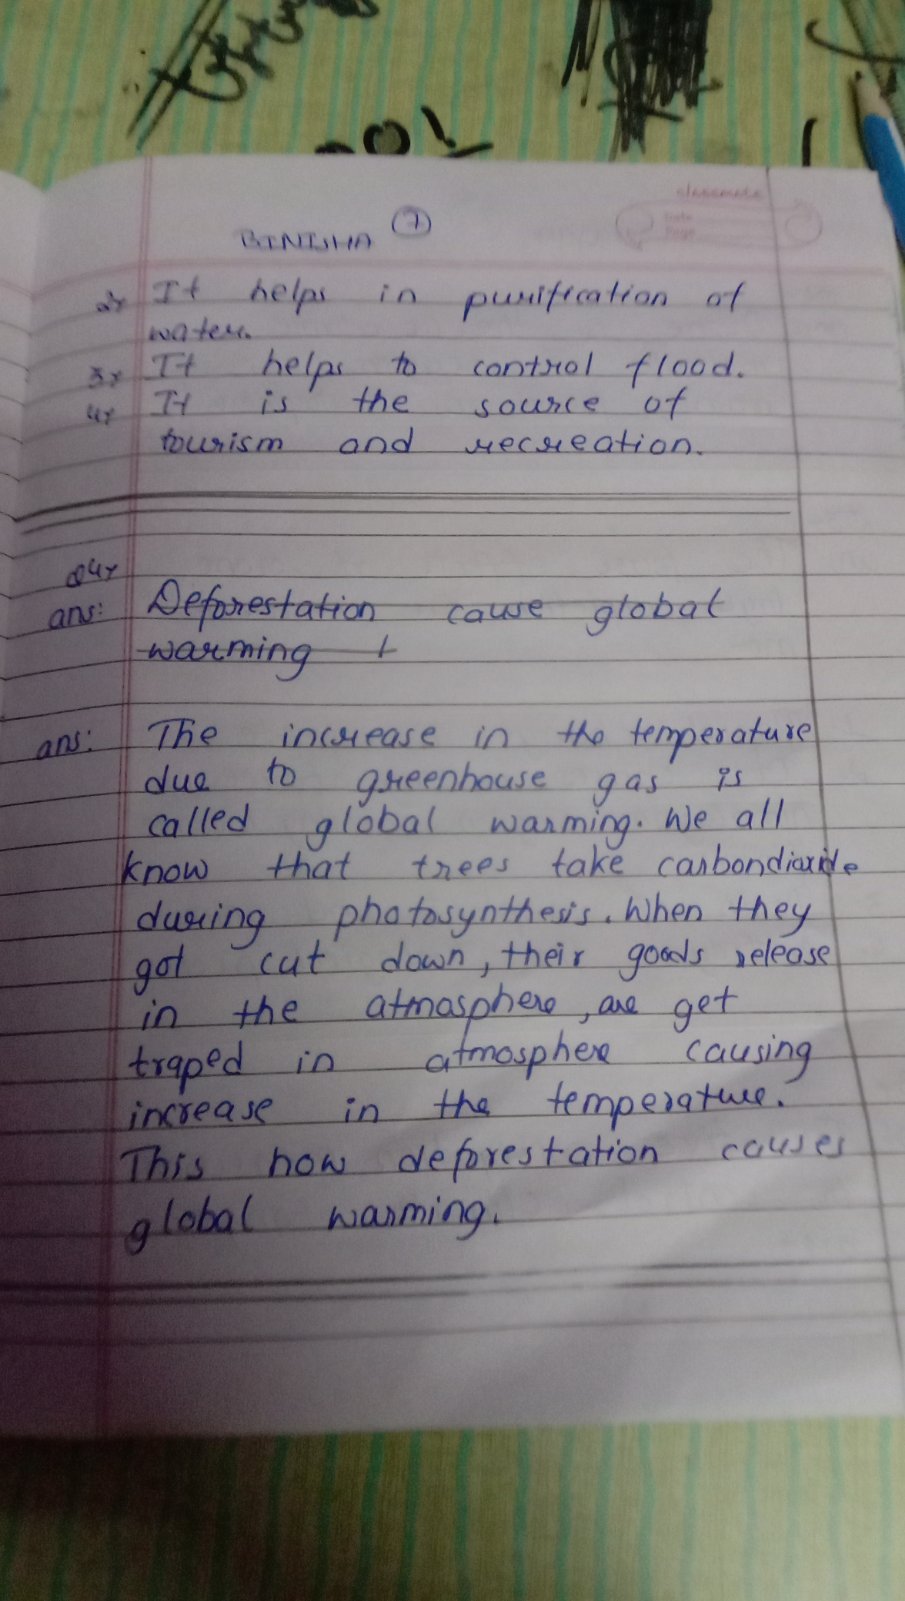 classmate
Date
Page
BINISHA 7
2) It helps in purification of
water.
3) It helps to control flood.
4) It is the source of
tourism and recreation.
Q4)
ans: Deforestation cause global
warming
ans: The increase in the temperature
due to greenhouse gas is
called global warming. We all
know that trees take carbondioxide
during photosynthesis. When they
got cut down, their goods release
in the atmosphere, are get
traped in atmosphere causing
increase in the temperature.
This how deforestation causes
global warming.